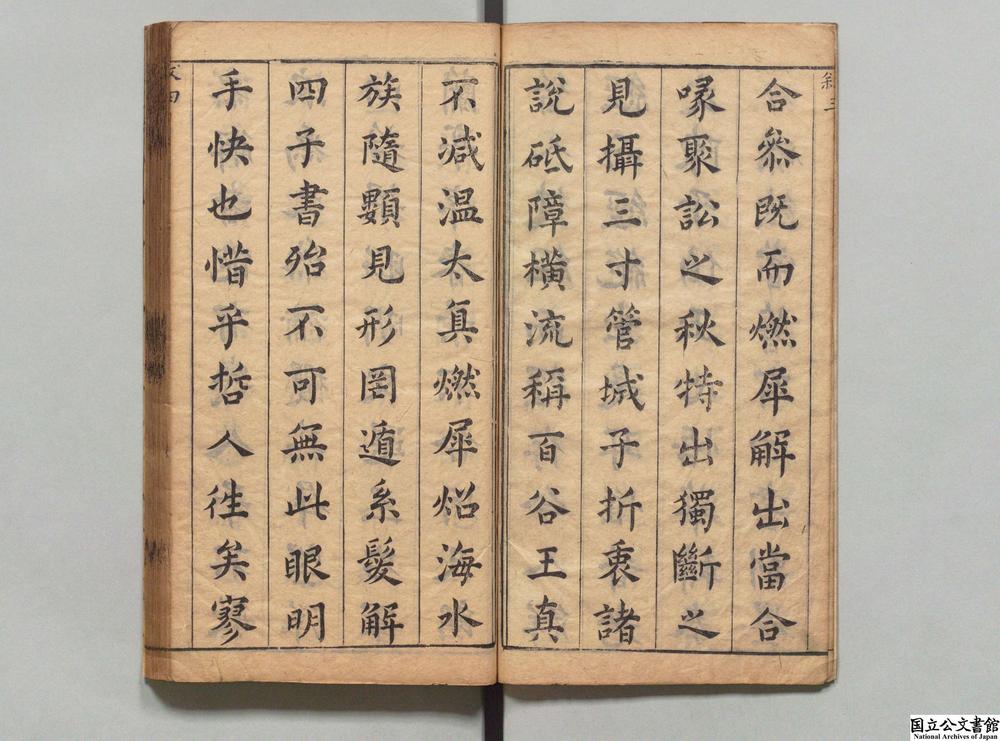 合叅既而燃犀解出當合
喙聚訟之秋特出獨斷之
見攝三寸管城子折衷諸
說砥障橫流稱百谷王真
不減温太真燃犀炤海水
族隨顆見形罔遁系髮解
四子書殆不可無此眼明
手快也惜乎哲人徃矣寥
叙三
国立公文書館
National Archives of Japan